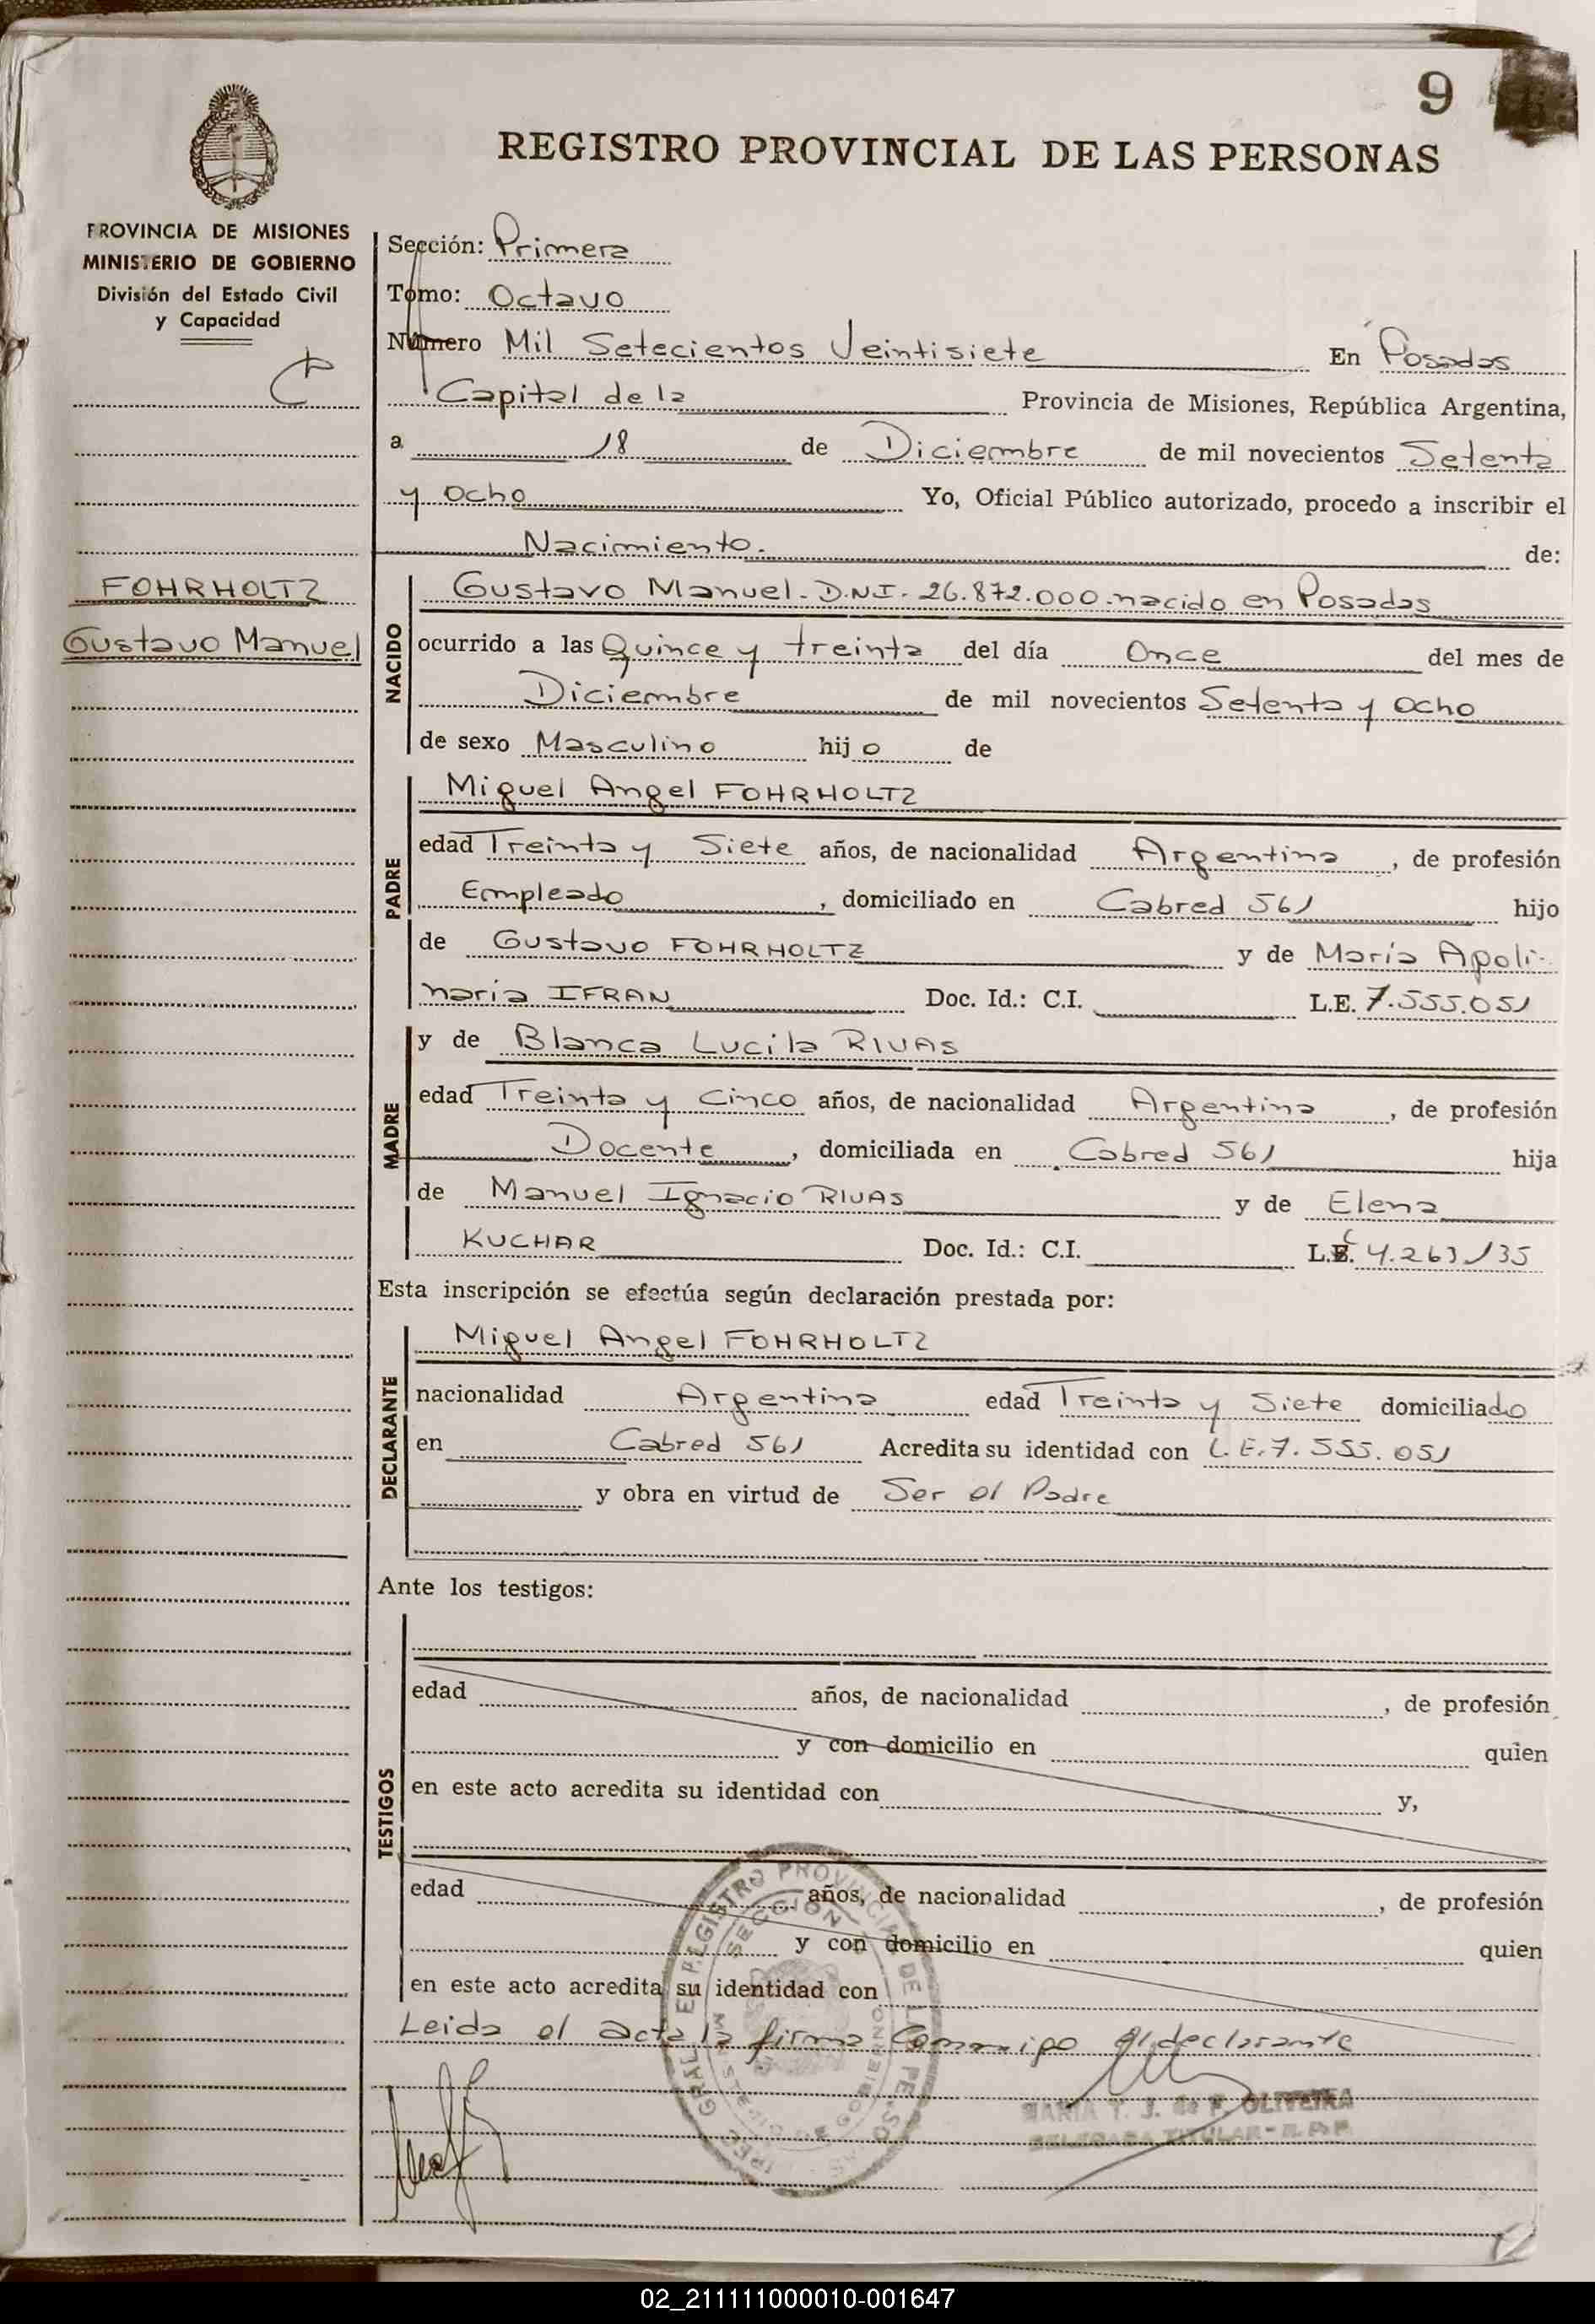 9
REGISTRO PROVINCIAL DE LAS PERSONAS
PROVINCIA DE MISIONES
MINISTERIO DE GOBIERNO
División del Estado Civil
y Capacidad
Sección: Primera
Tomo: Octavo
Número Mil Setecientos Veintisiete En Posadas
Capital de la Provincia de Misiones, República Argentina,
a 18 de Diciembre de mil novecientos Setenta
y Ocho Yo, Oficial Público autorizado, procedo a inscribir el
Nacimiento. de:
FOHRHOLTZ
Gustavo Manuel
NACIDO
Gustavo Manuel - D.N.I. 26.872.000 - nacido en Posadas
ocurrido a las Quince y treinta del día Once del mes de
Diciembre de mil novecientos Setenta y Ocho
de sexo Masculino hijo de
PADRE
Miguel Angel FOHRHOLTZ
edad Treinta y Siete años, de nacionalidad Argentina, de profesión
Empleado, domiciliado en Cabred 561 hijo
de Gustavo FOHRHOLTZ y de María Apoli-
naria IFRAN Doc. Id.: C.I. L.E. 7.555.051
MADRE
y de Blanca Lucila RIVAS
edad Treinta y Cinco años, de nacionalidad Argentina, de profesión
Docente, domiciliada en Cabred 561 hija
de Manuel Ignacio RIVAS y de Elena
KUCHAR Doc. Id.: C.I. L.C. 4.263.135
Esta inscripción se efectúa según declaración prestada por:
DECLARANTE
Miguel Angel FOHRHOLTZ
nacionalidad Argentina edad Treinta y Siete domiciliado
en Cabred 561 Acredita su identidad con L.E. 7.555.051
y obra en virtud de Ser el Padre
Ante los testigos:
TESTIGOS
edad años, de nacionalidad , de profesión
y con domicilio en quien
en este acto acredita su identidad con y,
edad años, de nacionalidad , de profesión
y con domicilio en quien
en este acto acredita su identidad con
Leida el acta la firma Conmigo el declarante
REGISTRO PROVINCIAL DE LAS PERSONAS
SECCION
MINISTERIO DE GOBIERNO
OLIVEIRA
TITULAR
02_211111000010-001647